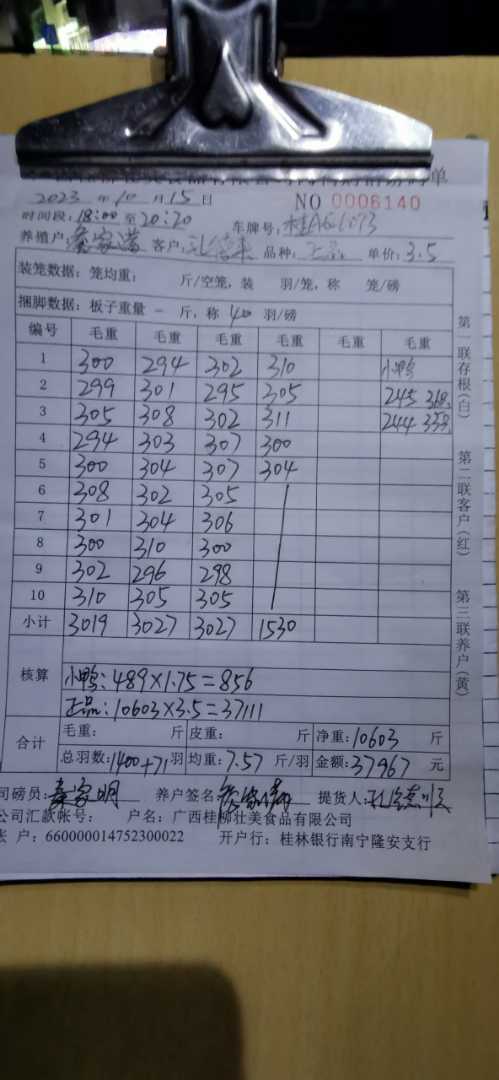 2023 年 10 月 15 日 NO 0006140
时间段: 18:00 至 20:20 车牌号:
养殖户: 客户: 品种: 正品 单价: 3.5
装笼数据: 笼均重: 斤/空笼, 装 羽/笼, 称 笼/磅
捆脚数据: 板子重量 - 斤, 称 40 羽/磅
编号 毛重 毛重 毛重 毛重 毛重 毛重
1 300 294 302 310 小鸭
2 299 301 295 305 245
3 305 308 302 311 244
4 294 303 307 300
5 300 304 307 304
6 308 302 305
7 301 304 306
8 300 310 300
9 302 296 298
10 310 305 305
小计 3019 3027 3027 1530
核算 小鸭: 489×1.75=856
正品: 10603×3.5=37111
合计 毛重: 斤 皮重: 斤 净重: 10603 斤
总羽数: 1400+71 羽 均重: 7.57 斤/羽 金额: 37967 元
司磅员: 秦家明 养户签名 提货人:
公司汇款帐号: 户名: 广西桂柳壮美食品有限公司
账 户: 660000014752300022 开户行: 桂林银行南宁隆安支行
第一联存根(白)
第二联客户(红)
第三联养户(黄)